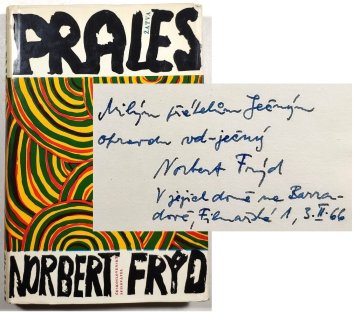 PRALES
ŽATVA
Milým přátelům Ječným
opravdu vd-ječný
Norbert Frýd
V jejich domě na Barran-
dově, Filmařská 1, 3.II.66
NORBERT FRÝD
ČESKOSLOVENSKÝ
SPISOVATEL